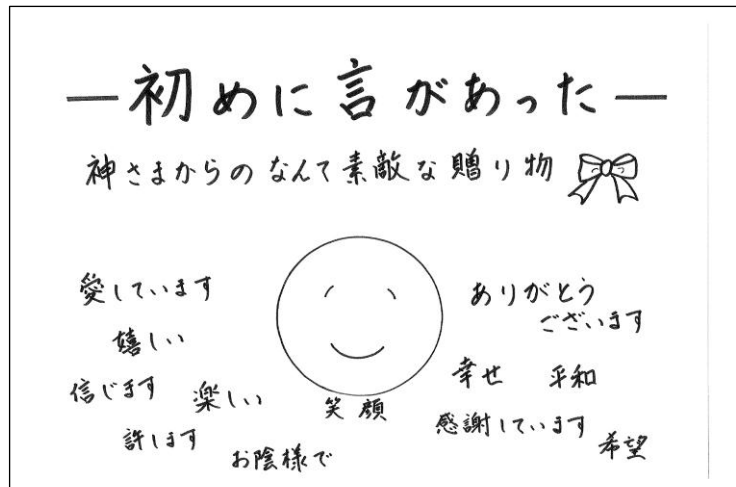 ―初めに言があった―
神さまからのなんて素敵な贈り物
愛しています
嬉しい
信じます
楽しい
許します
お陰様で
笑顔
ありがとう
ございます
幸せ
平和
感謝しています
希望